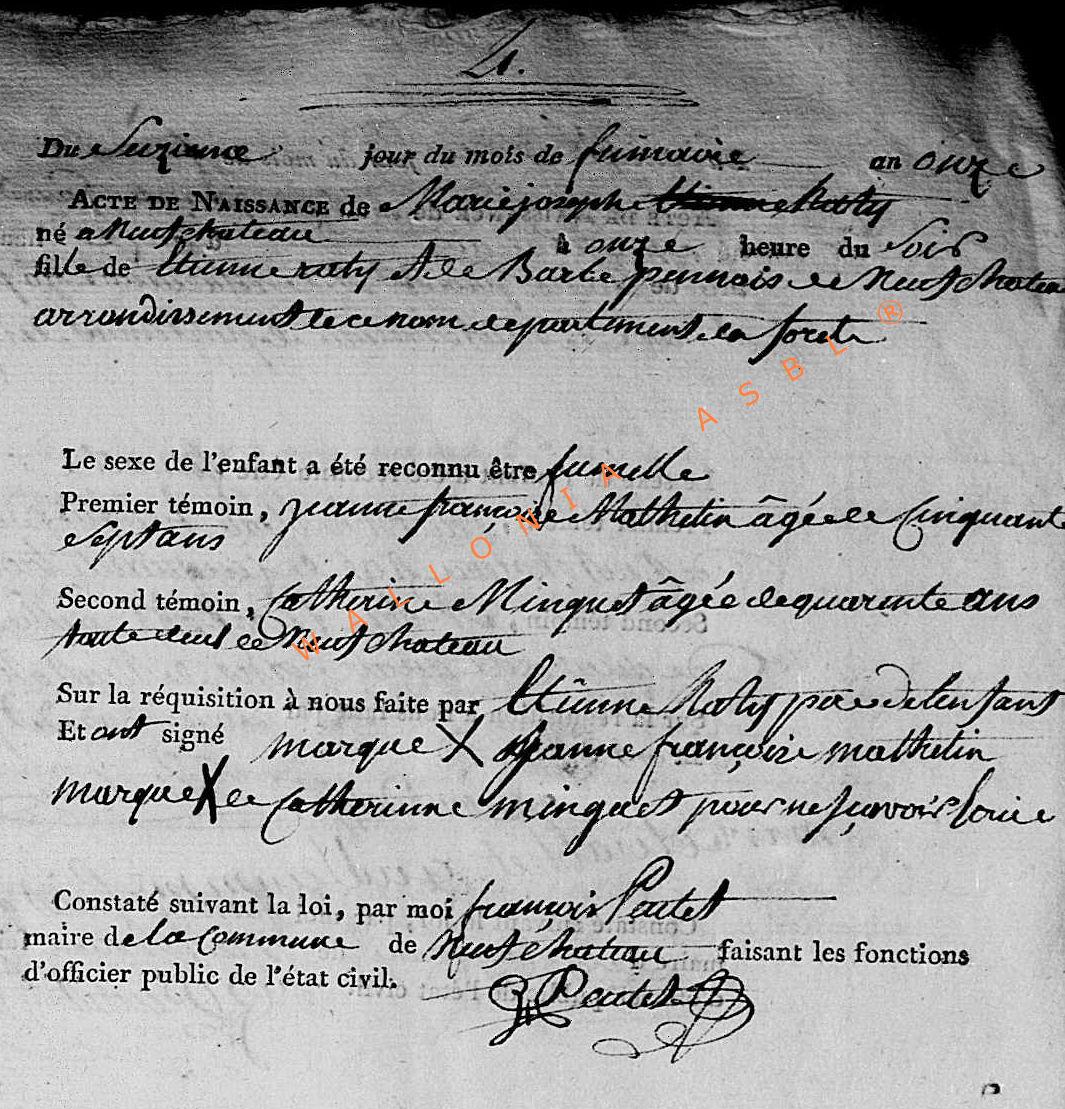 4.
Du Seizieme jour du mois de frimaire an onze
ACTE DE NAISSANCE de Mariejosephe Etienne Raty
né a Neufchateau à onze heure du Soir
fille de Etienne raty & de Barbe pennois de Neufchateau
arrondissement de ce nom departement de la foret
Le sexe de l'enfant a été reconnu être fumelle
Premier témoin, jeanne françoise Mathelin âgée de Cinquante
Sept ans
Second témoin, Catherine Minguet âgée de quarente ans
toute deux de Neufchateau
Sur la réquisition à nous faite par Etienne Raty pere de lenfant
Et ont signé marque X jeanne françoise mathelin
marque X de Catherinne minguet pour ne sçavoir
Constaté suivant la loi, par moi françois Poutet
maire de la Commune de Neufchateau faisant les fonctions
d'officier public de l'état civil.
Poutet
WALLONIA ASBL ®